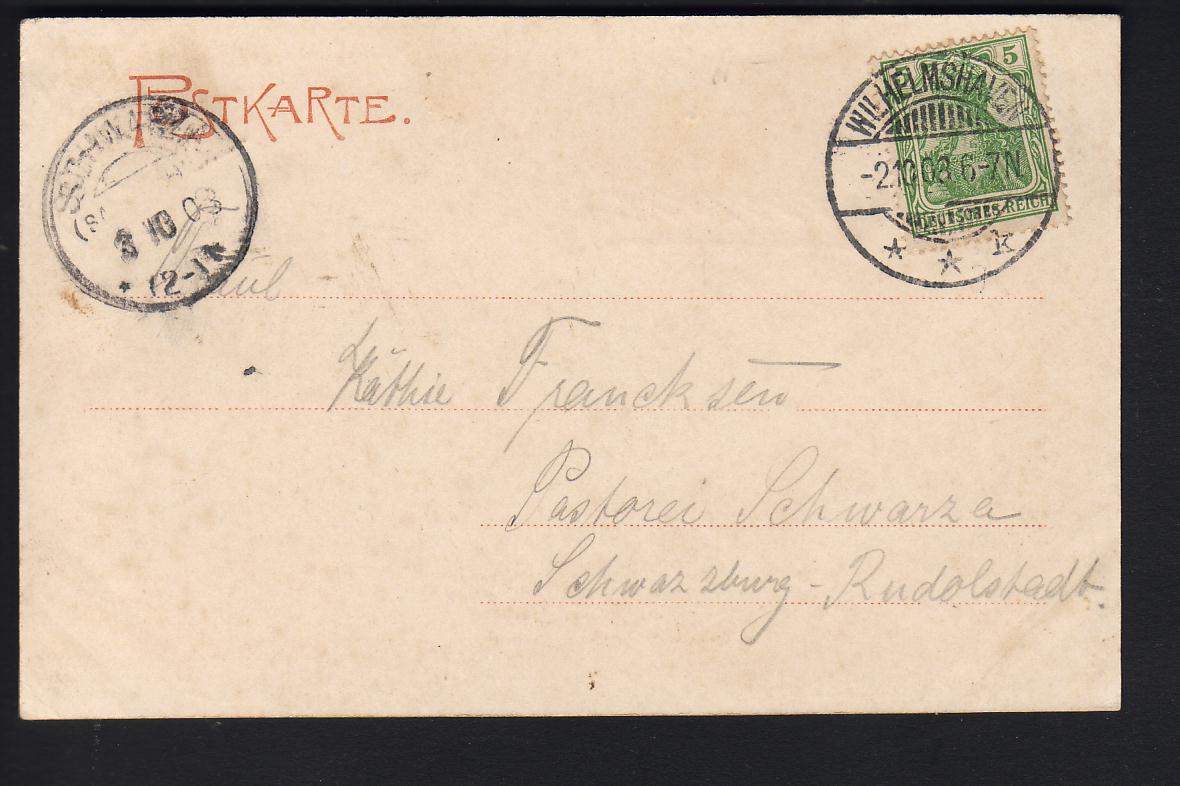 POSTKARTE.
5
WILHELMSHAVEN
-2.10.03 6-7N
DEUTSCHES REICH
* * k
SCHWARZA
3 10 03
* 12-1N
Käthie Francksen
Pastorei Schwarza
Schwarzburg-Rudolstadt.